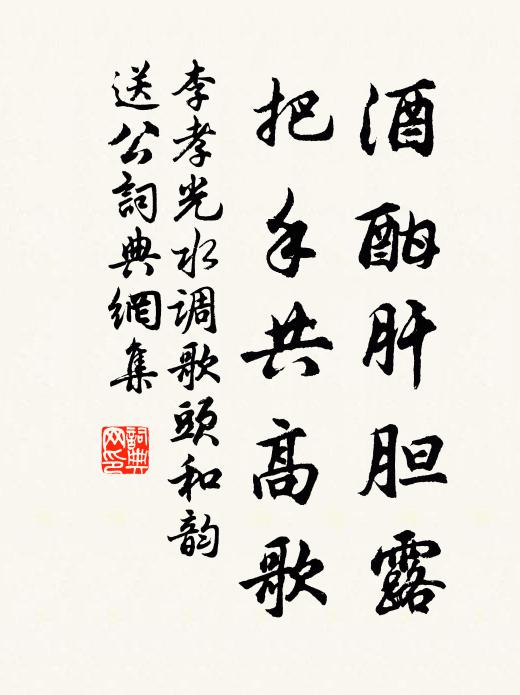 酒酣肝胆露
把手共高歌
李孝光水调歌頭和韵
送公詞典網集
詞典网印